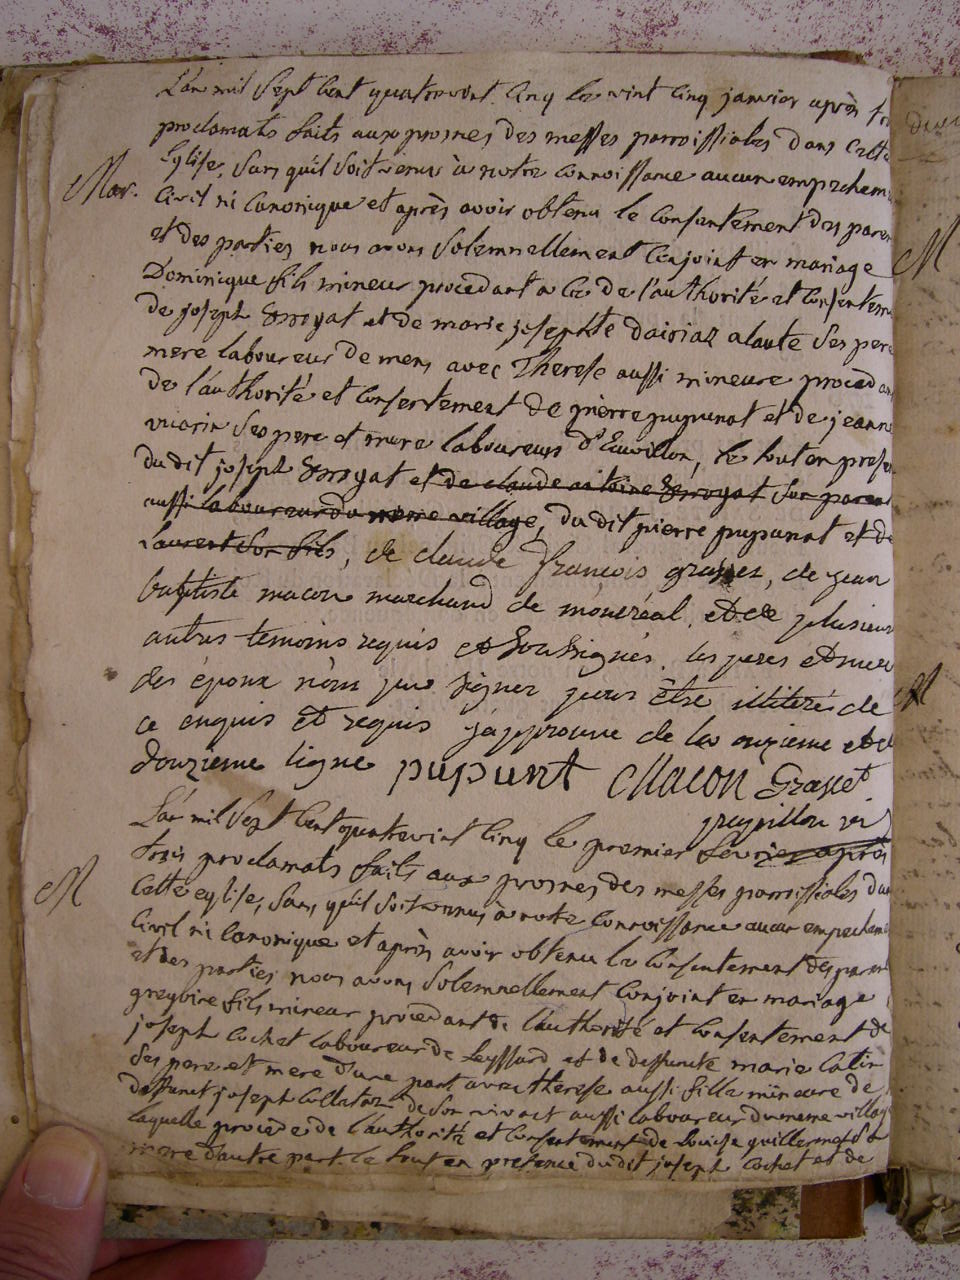 L'an mil Sept Cent quatrevint Cinq le vint Cinq janvier après
proclamats faits aux prosnes des messes parroissiales dans Cette
Eglise, Sans qu'il Soit venu à notre Connoissance aucun empechem
Mar.
Civil ni Canonique et après avoir obtenu le Consentement des paren
et des parties nous avons Solemnellement Conjoint en mariage
Dominique fils mineur procedant a Ce de l'authorité et Consentem
de joseph et de marie josephte a Ses pere
mere laboureur de mens avec Therese aussi mineure proced
de l'authorité et Consentement de pierre pupunat et de jeanne
vuarin Ses pere et mere laboureurs le tout en presen
du dit joseph et de claude antoine Son parent
aussi laboureur du meme village, du dit pierre pupunat et de
laurent Son fils, de claude françois de jean
baptiste macon marchand de montréal, et de plusieur
autres temoins requis et Soussignés. les peres et mere
des époux n'ont pus signer pour être illiterés de
ce enquis et requis j'approuve de la onzieme et d
douzieme ligne pupunt Macon Gravet
L'an mil Sept Cent quatrevint Cinq le premier fevrier après
M
trois proclamats faits aux prosnes des messes parroissiales dan
Cette eglise, Sans qu'il Soit venus à notre Connoissance aucun empechem
Civil ni Canonique et après avoir obtenu le Consentement des paren
et des parties nous avons Solemnellement Conjoint en mariage
fils mineur procedant de l'authorité et Consentement de
joseph Cochet laboureur de Leyssard et de deffuncte marie Catin
Ses pere et mere d'une part avec therese aussi fille mineure de
deffunct joseph de Son vivant aussi laboureur du meme villag
laquelle procede de l'authorité et Consentement de Louise guillermet Sa
mere d'autre part le tout en presence du dit joseph Cochet et de
M
M